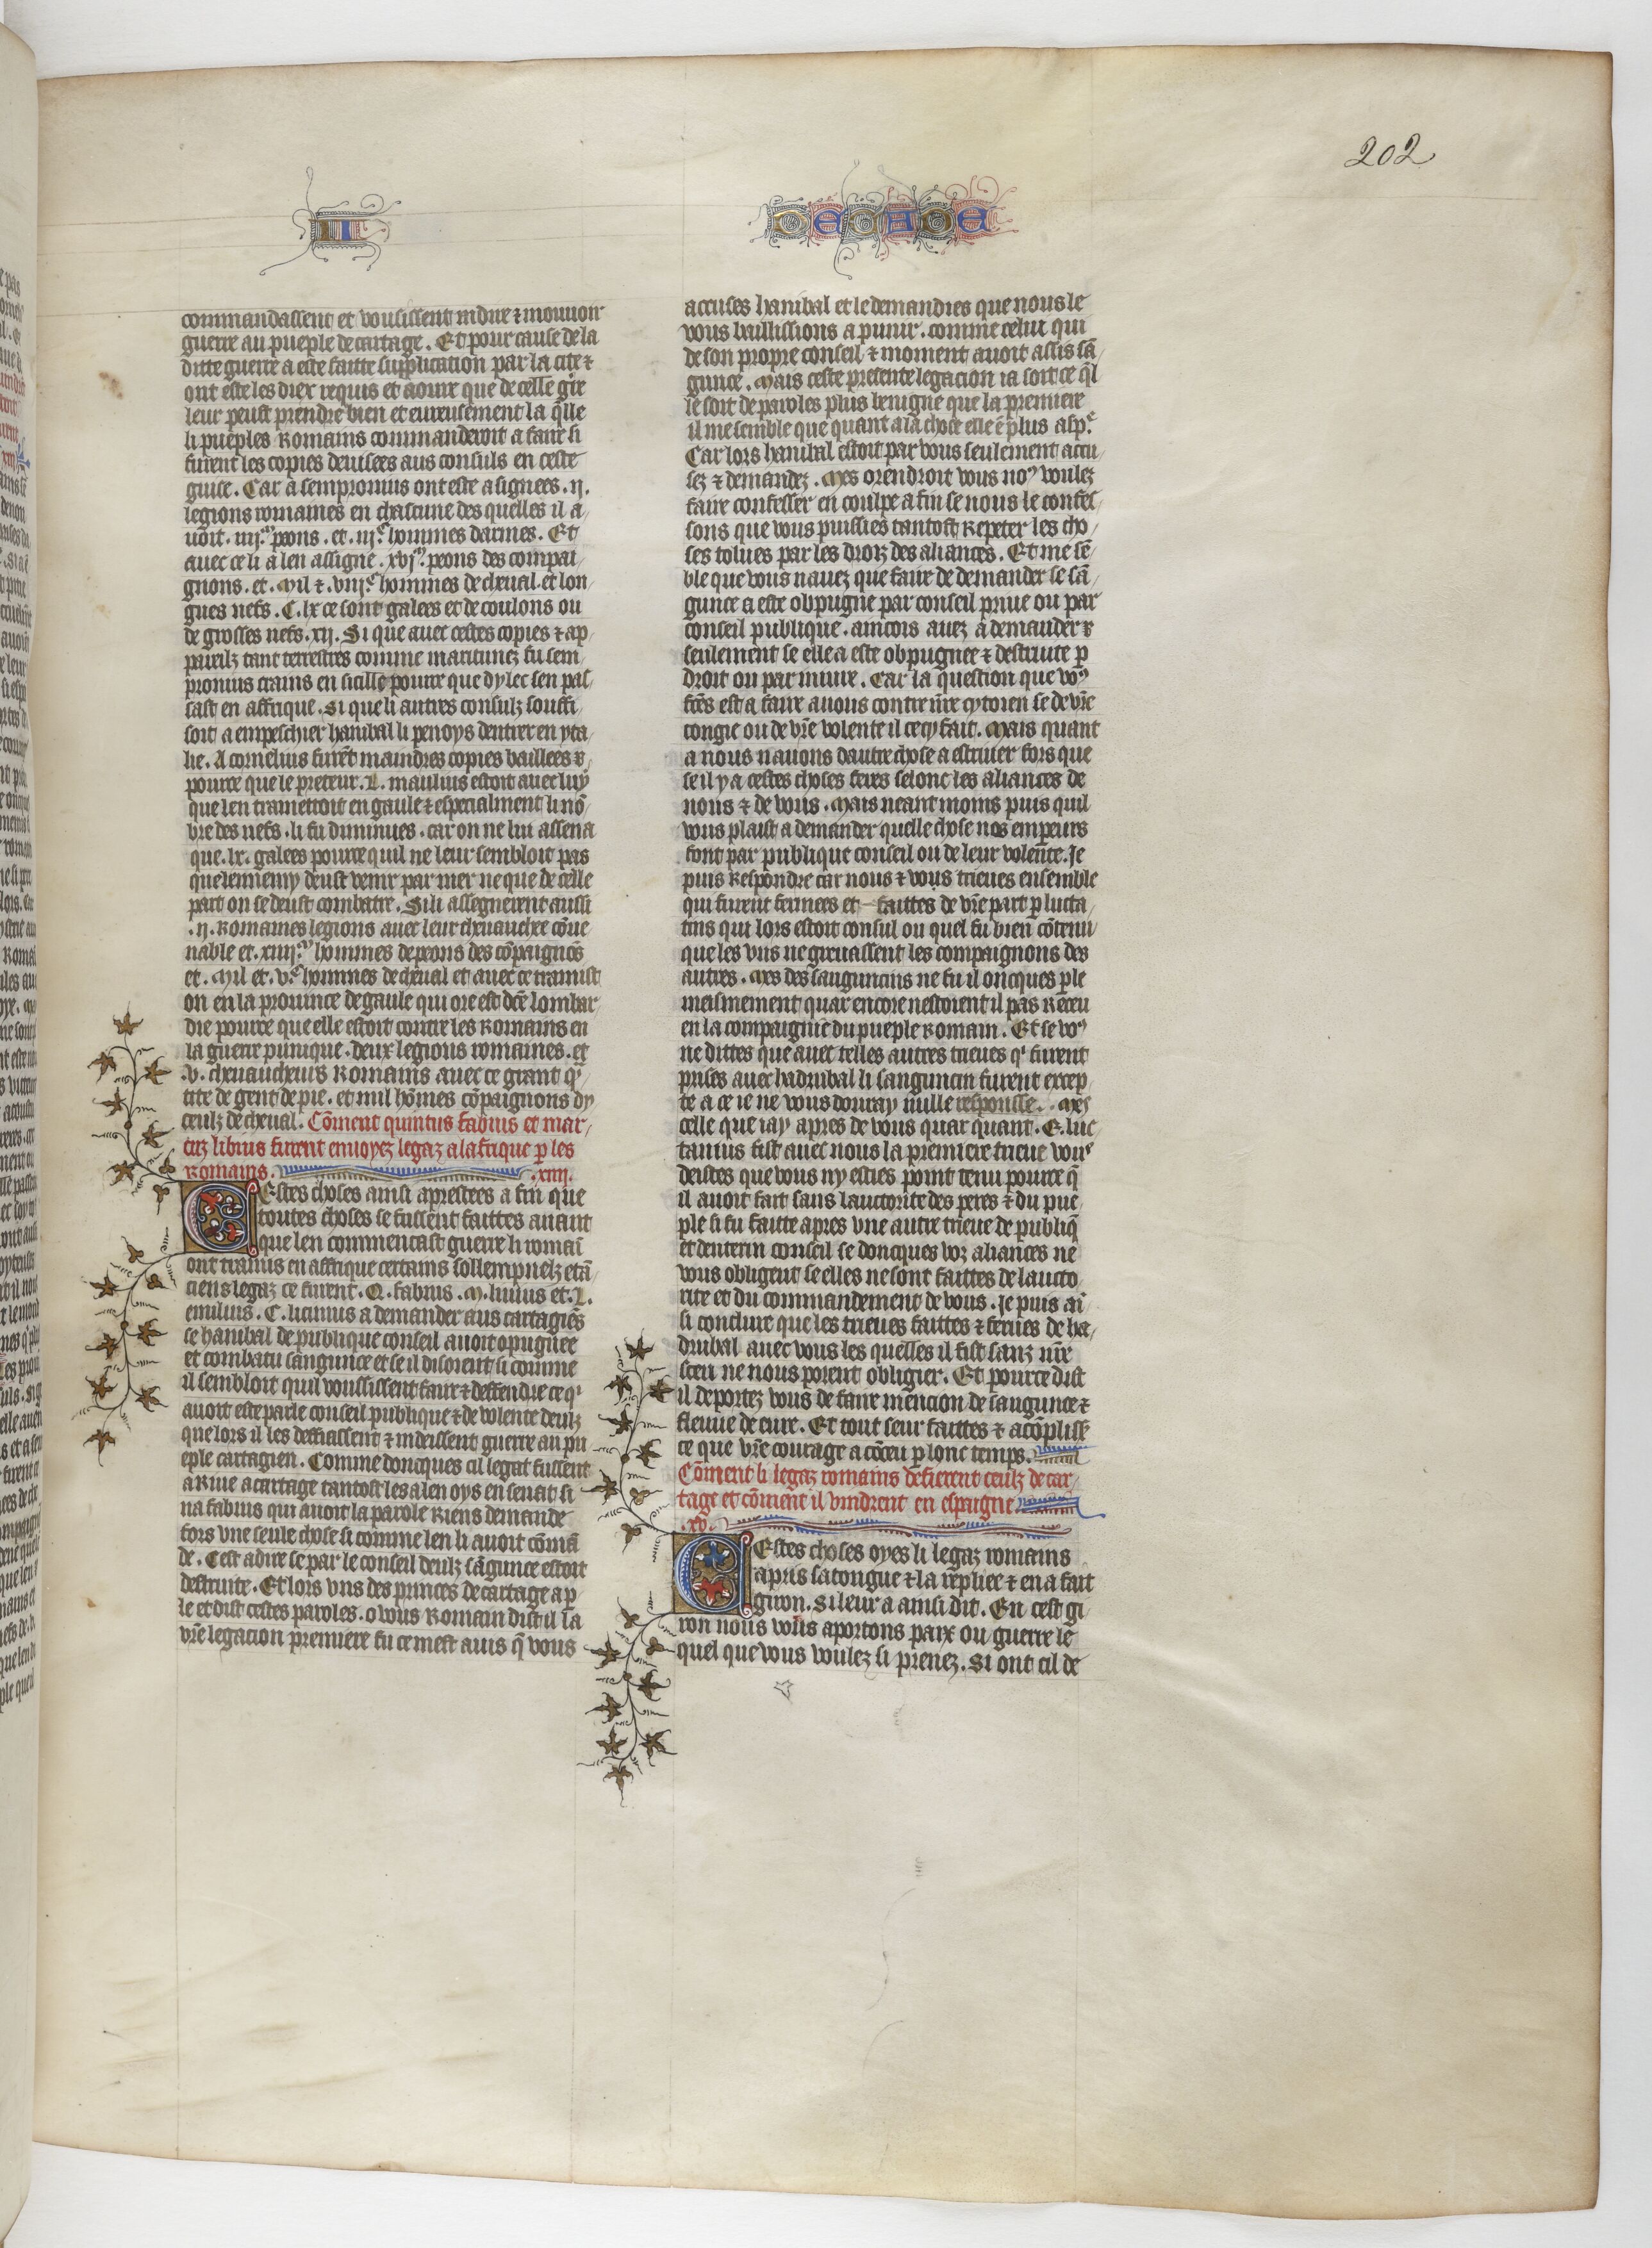 202
II
DECADE
commandassent et vousissent indire ⁊ mouuoir
guerre au pueple de cartage. Et pour cause de la
ditte guerre a este faitte supplication par la cite ⁊
ont este les diex requis et aoure que de celle gre
leur peust prendre bien et eureusement la q̄lle
li pueples Romains commanderoit a faire si
furent les copies deuisees aus consuls en ceste
guise. Car a sempronius ont este asignees .ij.
legions romaines en chascune des quelles il a/
uoit .iiij.ͫ peons. et .iijᶜ hommes darmes. Et
auec ce li a len assigne .xvj.ͫ peons des compai/
gnons. et. Mil ⁊ .viij.ᶜ hommes de cheual. et lon/
gues nefs .C. lx ce sont galees et de coulons ou
de grosses nefs .xij. Si que auec cestes copies ⁊ ap/
pareilz tant terrestres comme maritimez fu sem/
pronius trams en sicille pource que dylec sen pas/
sast en affrique. Si que li autres consulz souffi/
soit a empeschier hanibal li penoys dentrer en yta/
lie. A cornelius furēt maindres copies baillees ⁊
pource que le preteur .L. mauluis estoit auec luy
que len tramettoit en gaule ⁊ especialment li nō/
bre des nefs. li fu diminues. car on ne lui assena
que .lx. galees pource quil ne leur sembloit pas
que lennemy deust venir par mer ne que de celle
part on se deust combatre. Si li assegnerent aussi
.ij. Romaines legions auec leur cheuauchee cōue
nable et .xiiij.ͫ hommes de peons des cōpaignōs
et. Mil et. v.ᶜ hommes de cheual et auec ce tramist
on en la prouince de gaule qui ore est dc̄e lombar/
die pource que elle estoit contre les Romains en
la guerre punique. deux legions romaines. et
.v. cheuaucheurs Romains auec ce grant qᵃ/
tite de gent de pie. et mil hōmes cōpaignons dy
ceulz de cheual. Cōment quintus fabius et mar/
cuz libius furent enuoyez legaz a lafrique p̲ les
Romains. .xiiij.
Cestes choses ainsi aprestees a fin que
toutes choses se fussent faittes auant
que len commencast guerre li romaī
ont tramis en affrique certains sollempnelz etā/
ciens legaz ce furent. Q. fabius. M. liuius et. L.
emilius. C. licinius a demander aus cartagiēs
se hanibal de publique conseil auoit opugnee
et combatu sangunce et se il disoient si comme
il sembloit quil voussissent faire ⁊ deffendre ce qⁱ
auoit este par le conseil publique ⁊ de volente deulz
que lors il les deffiassent ⁊ indeissent guerre au pu
eple cartagien. Comme doncques cil legat fussent
a Riue a cartage tantost les a len oys en senat si
na fabius qui auoit la parole Riens demande
fors vne seule chose si comme len li auoit cōmā
de. Cest adire se par le conseil deulz sāgunce estoit
destruite. Et lors vns des princes de cartage a p̲
le et dist cestes paroles. o vous Romain dist il la
vr̄e legacion premiere fu ce mest auis q̄ vous
accuses hanibal et le demandies que nous le
vous baillissions a punir. comme celui qui
de son propre conseil ⁊ moment auoit assis sā/
gunce. Mais ceste presente legacion ia soit ce q̄l
le soit de paroles plus benigne que la premiere
il me semble que quant a la chose elle ē plus asp̲ᵉ
Car lors hanibal estoit par vous seulement accu/
sez ⁊ demandez. Mes orendroit vous noˀ voulez
faire confesser en coulpe a fin se nous le confes/
sons que vous puissies tantost Repeter les cho/
ses tolues par les droiz des aliances. Et me sē/
ble que vous nauez que faire de demander se sā/
gunce a este obpugne par conseil priue ou par
conseil publique. aincois auez a demander
seulement se elle a este obpugnee ⁊ destruite p̲
droit ou par iniure. Car la question que voˀ
fc̄es est a faire auons contre nr̄e cytoien se de vr̄e
congie ou de vr̄e volente il cecy fait. Mais quant
a nous nauons dautre chose a estriuer fors que
se il y a cestes choses feres selonc les aliances de
nous ⁊ de vous. Mais neant moins puis quil
vous plaist a demander quelle chose nos emp̲eurs
font par publique conseil ou de leur volente. Je
puis Respondre car nous ⁊ vous trieues ensemble
qui furent fermees et faittes de vr̄e part p̲ lucta/
tius qui lors estoit consul ou quel fu bien cōtenu
que les vns ne greuassent les compaignons des
autres. Mes des sanguncins ne fu il oncques p̲le
meismement quar encore nestoient il pas Receu
en la compaignie du pueple Romain. Et se voˀ
ne dittes que auec telles autres trieues qⁱ furent
prises auec hadrubal li sanguncin furent excep/
te a ce ie ne vous donray nulle response. Mes
celle que iay apres de vous quar quant. C. luc/
tatius fist auec nous la premiere trieue vouˢ
deistes que vous ny esties point tenu pource q̄
il auoit fait sans lauctorite des peres ⁊ du pue/
ple si fu faitte apres vne autre trieue de publiq̄
et denterin conseil se doncques voz aliances ne
vous obligent se elles ne sont faittes de laucto/
rite et du commandement de vous. Je puis aī
si conclure que les trieues faittes ⁊ ferues de ha/
drubal auec vous les quelles il fist sanz nr̄e
sceu ne nous porent obligier. Et pource dist
il deportez vous de faire mencion de sangunce ⁊
fleuue de eure. Et tout seur faittes ⁊ acōplisse
ce que vr̄e courage a cōceu p̲ lonc temps.
Cōment li legaz romains defierent ceulz de car/
tage et cōment il vindrent en espaigne
.xv.
Cestes choses oyes li legaz romains
apris sa tongue ⁊ la repliee ⁊ en a fait
giron. Si leur a ainsi dit. En cest gi/
ron nous vous aportons paix ou guerre le
quel que vous voulez si prenez. Si ont cil de